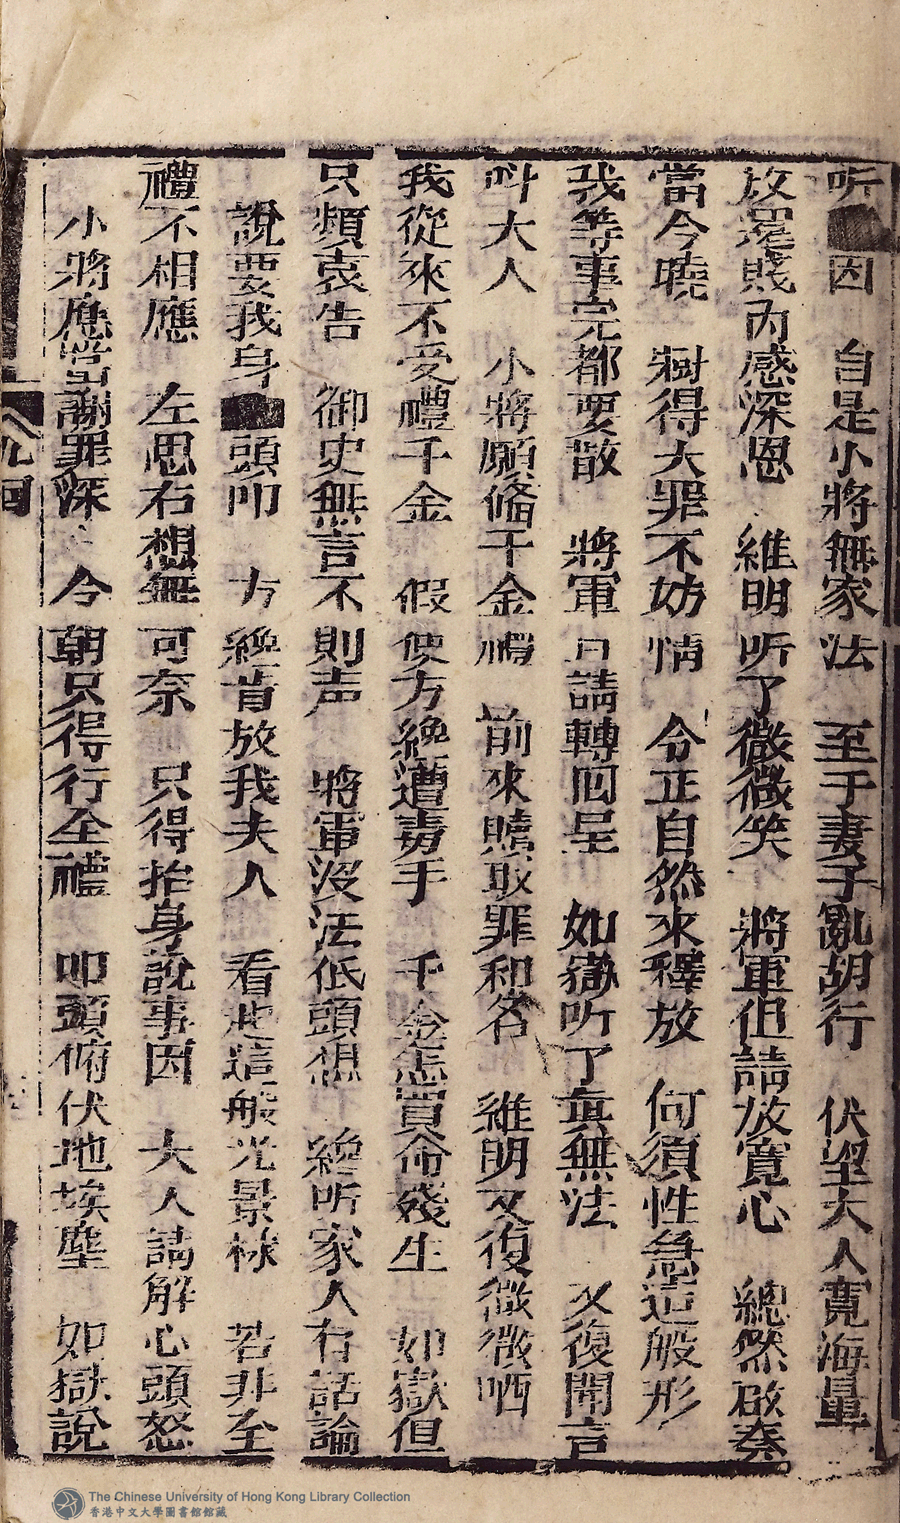 听 因 自是小將無家法 至于妻子亂胡行 伏望大人寬海量
放還賤內感深恩 維明听了微微笑 將軍但請放寬心 總然啟奏
當今曉 擬得大罪不妨情 令正自然來釋放 何須性急這般形
我等事完都要散 將軍 請轉回呈 如嶽听了真無法 又復開言
叫大人 小將願俻千金禮 前來贖取罪和名 維明又復微微哂
我從來不受禮千金 假使方纔遭毒手 千金怎買命殘生 如嶽但
只頻哀告 御史無言不則声 將軍没法低頭想 纔听家人有話論
說要我身 頭叩 方纔肯放我夫人 看起這般光景來 若非全
禮不相應 左思右想無可奈 只得抬身說事因 大人請解心頭怒
小將應當謝罪深 今朝只得行全禮 叩頭俯伏地埃塵 如嶽說
九回
The Chinese University of Hong Kong Library Collection
香港中文大學圖書館館藏